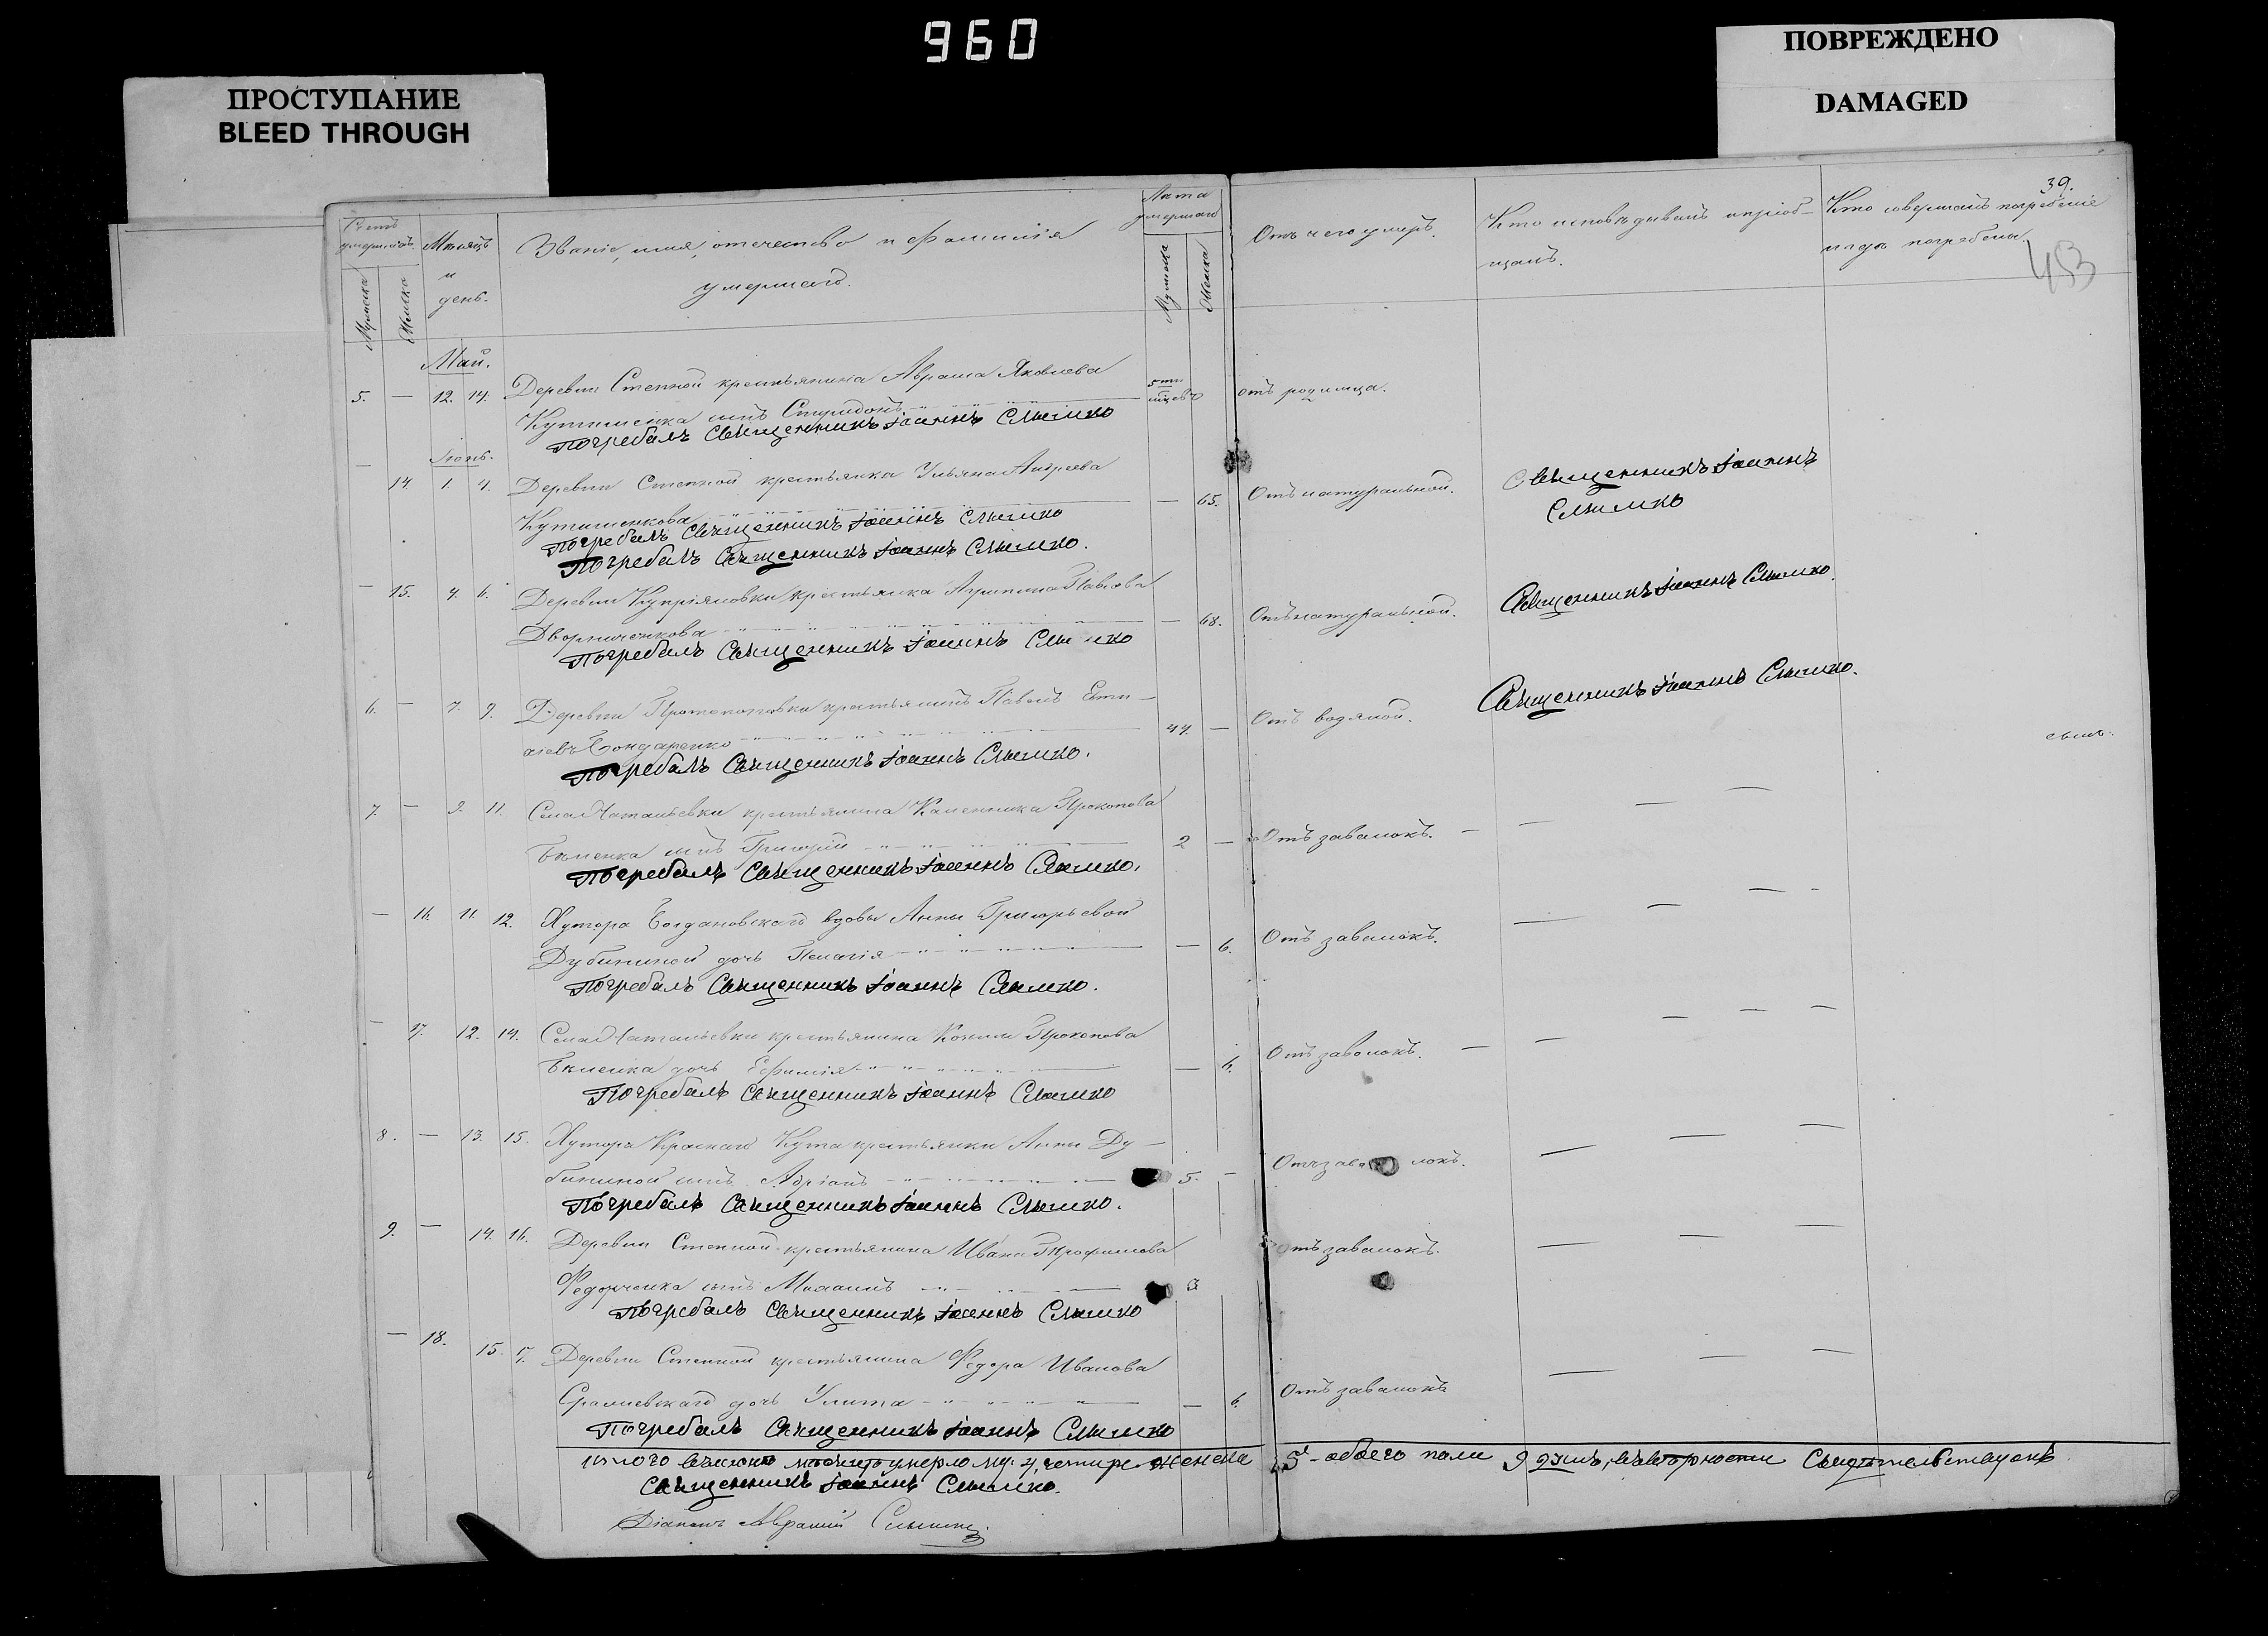 960
ПРОСТУПАНИЕ
BLEED THROUGH
ПОВРЕЖДЕНО
DAMAGED
39.
453
Счетъ умершихъ.
Мужеска
Женска
Мѣсяцъ и день.
Званіе, имя, отечество и фамилія
умершаго.
Лѣта умершаго
Мужска
Женска
Отъ чего умеръ.
Кто исповѣдывалъ и пріоб-
щалъ.
Кто совершалъ погребеніе
и гдѣ погребены.
Май.
5. — 12. 14. Деревни Степной крестьянина Аврама Яковлева 5ти отъ родимца.
сынъ
Погребалъ Священникъ Іоаннъ Слымко
Іюнь.
— 14. 1. 4. Деревни Степной крестьянка Ульяна Андреева — 65. Отъ натуральной. Священникъ Іоаннъ
Слымко
Погребалъ Священникъ Іоаннъ Слымко
Погребалъ Священникъ Іоаннъ Слымко.
— 15. 4. 6. Деревни Купріяновки крестьянка Агрипина Павлова
Дворниченкова — 68. Отъ натуральной. Священникъ Іоаннъ Слымко.
Погребалъ Священникъ Іоаннъ Слымко
6. — 7. 9. Деревни крестьянинъ Павелъ
Бондаренко 44. — Отъ водяной. Священникъ Іоаннъ Слымко.
Погребалъ Священникъ Іоаннъ Слымко.
7. — 9. 11. Села Натальевки крестьянина Прокопова
сынъ Григорій 2 — Отъ завалокъ.
Погребалъ Священникъ Іоаннъ Слымко.
— 16. 11. 12. Хутора Богдановскаго вдовы Анны Григорьевой
Дубининой дочь Пелагія — 6. Отъ завалокъ.
Погребалъ Священникъ Іоаннъ Слымко.
— 17. 12. 14. Села Натальевки крестьянина Козьмы Прокопова
дочь Ефимія — 6. Отъ завалокъ.
Погребалъ Священникъ Іоаннъ Слымко
8. — 13. 15. Хутора Краснаго Кута крестьянки Анны Ду-
бининой сынъ Адріанъ 5. — Отъ завалокъ.
Погребалъ Священникъ Іоаннъ Слымко.
9. — 14. 16. Деревни Степной крестьянина Ивана Трофимова
Федорченка сынъ 3 Отъ завалокъ.
Погребалъ Священникъ Іоаннъ Слымко
— 18. 15. 17. Деревни Степной крестьянина Федора Иванова
дочь Улита — 6. Отъ завалокъ
Погребалъ Священникъ Іоаннъ Слымко
Итого мѣсяцѣ умерло му: 4, четыре женска 5 обоего пола 9 душъ,
Священникъ Іоаннъ Слымко.
Діаконъ